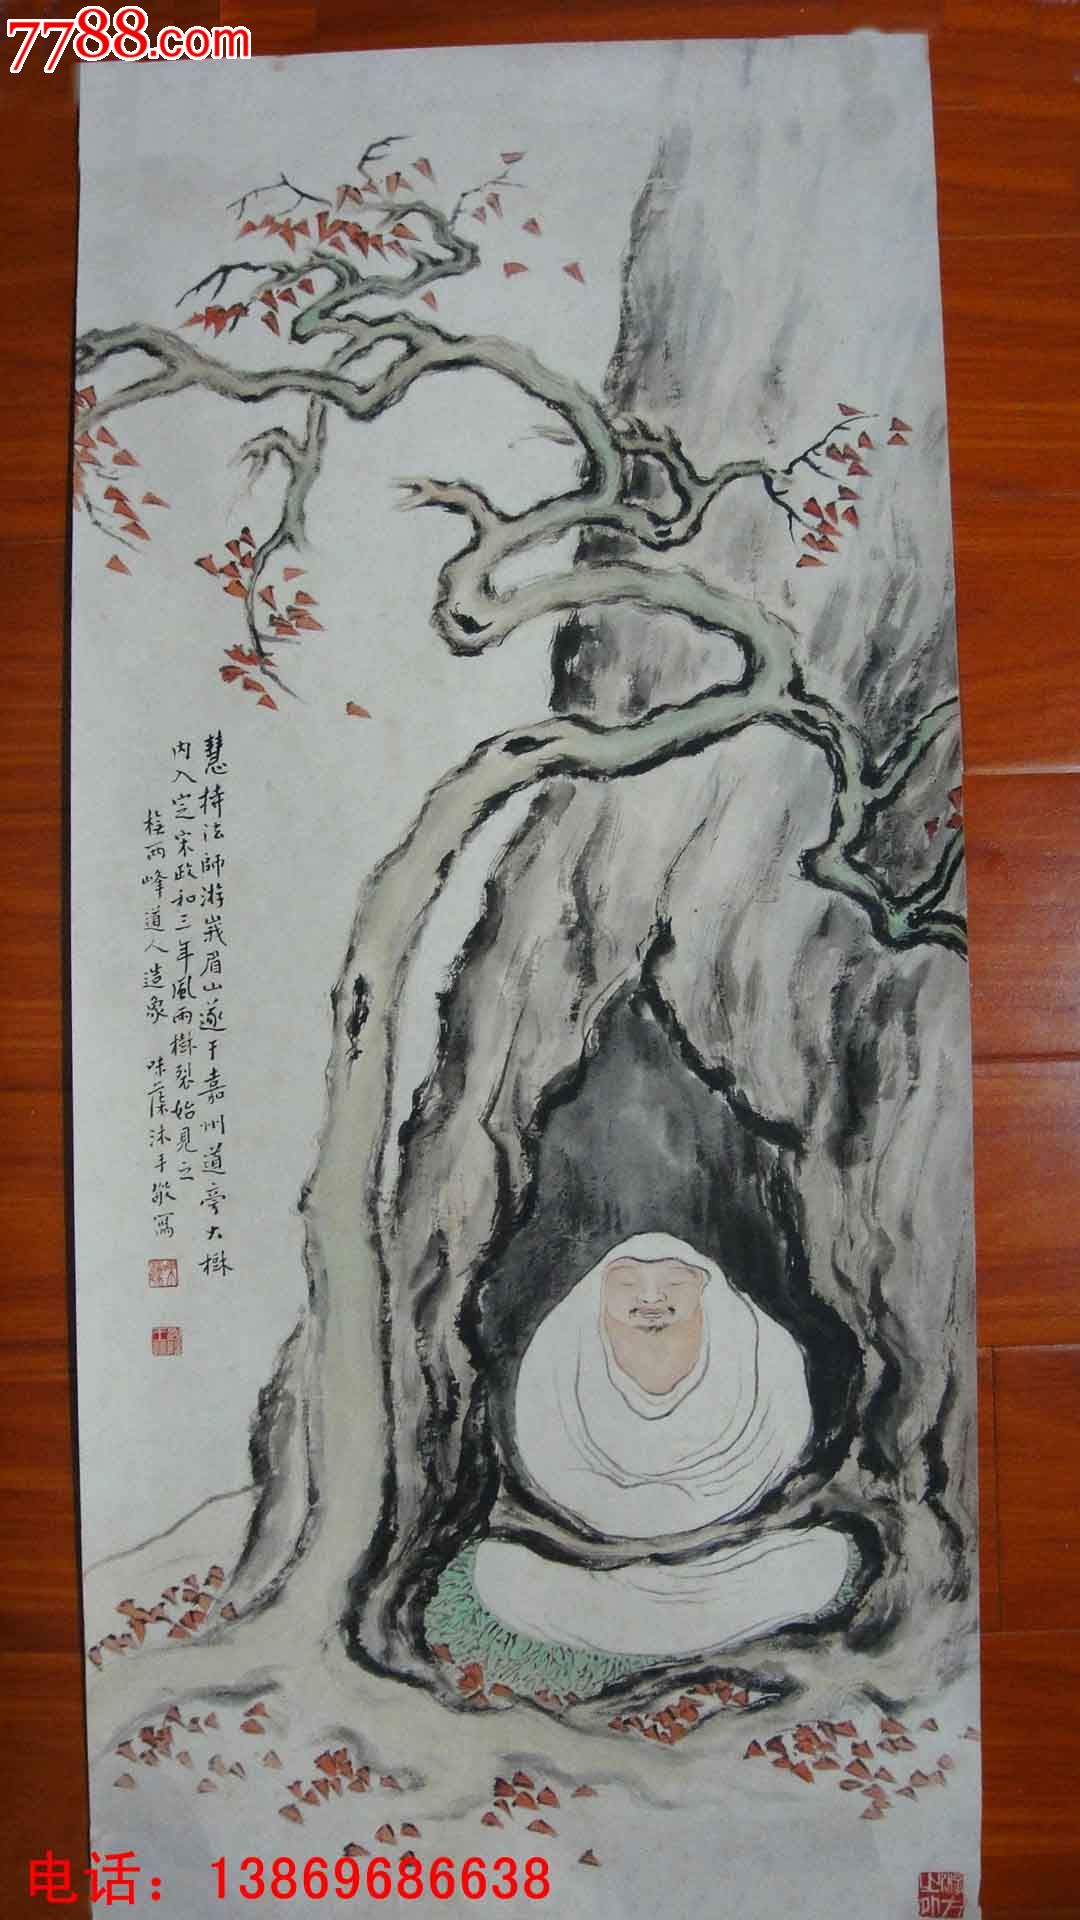 7788.com
慧持法師游峩眉山遂于嘉州道旁大樹
内入定宋政和三年風雨樹裂始見之
橅兩峰道人造象 味蕖沐手敬寫
电话：13869686638